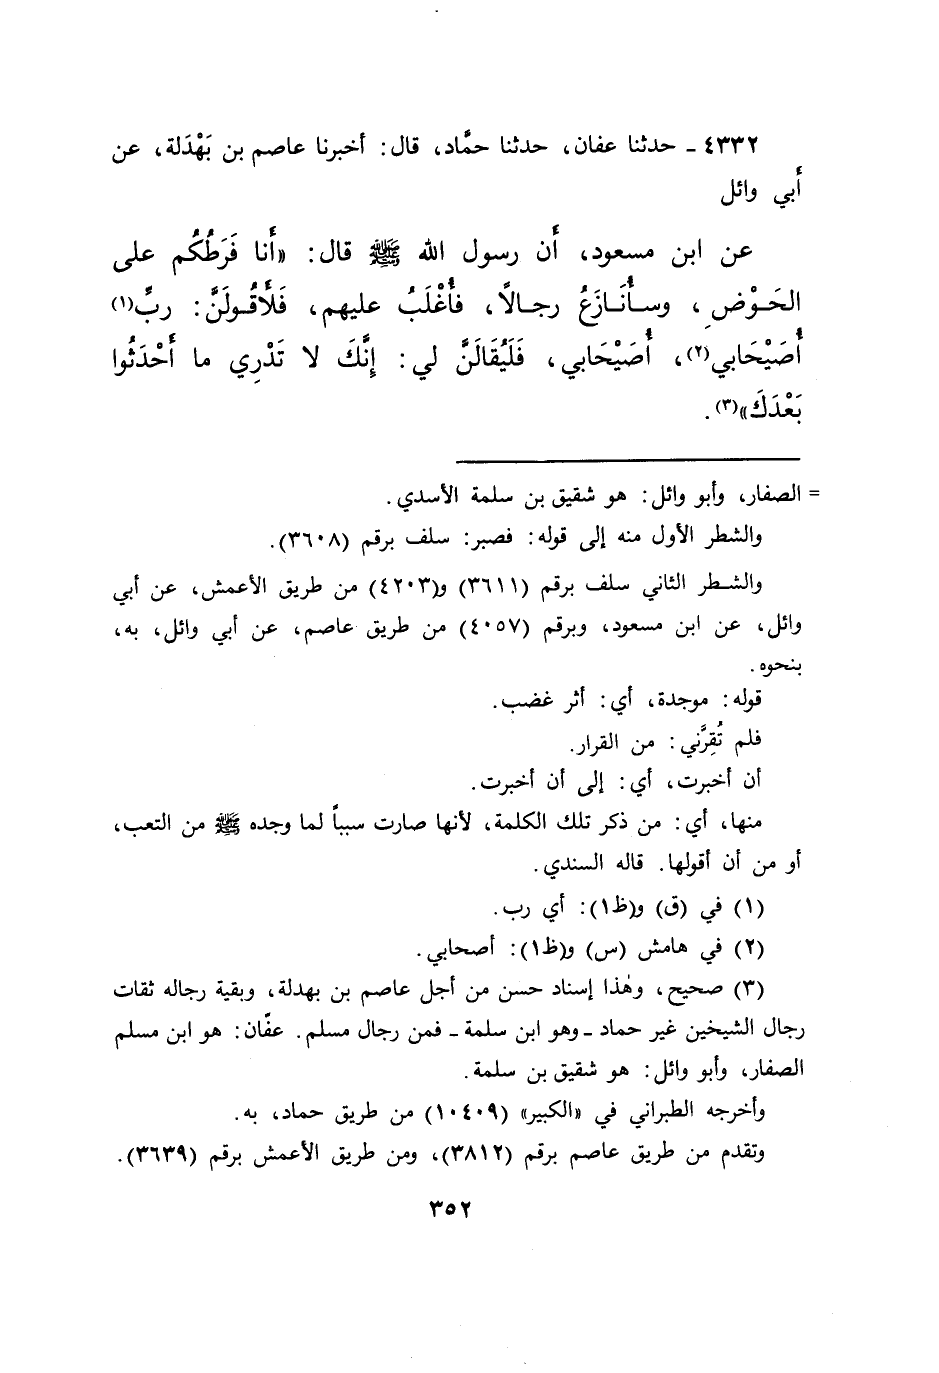 ٤٣٣٢ - حدثنا عفان، حدثنا حمَّاد، قال: أخبرنا عاصم بن بَهْدَلة، عن
أَبي وائل
عن ابن مسعود، أَن رسول الله ﷺ قال: «أَنا فَرَطُكُم على
الحَوْضِ، وسأُنَازَعُ رجالاً، فأُغْلَبُ عليهم، فَلَأَقُولَنَّ: ربِّ(١)
أُصَيْحَابي(٢)، أُصَيْحَابي، فَلَيُقَالَنَّ لي: إِنَّكَ لا تَدْرِي ما أَحْدَثُوا
بَعْدَكَ»(٣).
= الصفار، وأبو وائل: هو شقيق بن سلمة الأسدي.
والشطر الأول منه إلى قوله: فصبر: سلف برقم (٣٦٠٨).
والشطر الثاني سلف برقم (٣٦١١) و(٤٢٠٣) من طريق الأعمش، عن أبي
وائل، عن ابن مسعود، وبرقم (٤٠٥٧) من طريق عاصم، عن أبي وائل، به،
بنحوه.
قوله: موجدة، أي: أثر غضب.
فلم تُقِرَّني: من القرار.
أن أخبرت، أي: إلى أن أخبرت.
منها، أي: من ذكر تلك الكلمة، لأنها صارت سبباً لما وجده ﷺ من التعب،
أو من أن أقولها. قاله السندي.
(١) في (ق) و(ظ١): أي رب.
(٢) في هامش (س) و(ظ١): أصحابي.
(٣) صحيح، وهٰذا إسناد حسن من أجل عاصم بن بهدلة، وبقية رجاله ثقات
رجال الشيخين غير حماد - وهو ابن سلمة - فمن رجال مسلم. عفَّان: هو ابن مسلم
الصفار، وأبو وائل: هو شقيق بن سلمة.
وأخرجه الطبراني في «الكبير» (١٠٤٠٩) من طريق حماد، به.
وتقدم من طريق عاصم برقم (٣٨١٢)، ومن طريق الأعمش برقم (٣٦٣٩).
٣٥٢